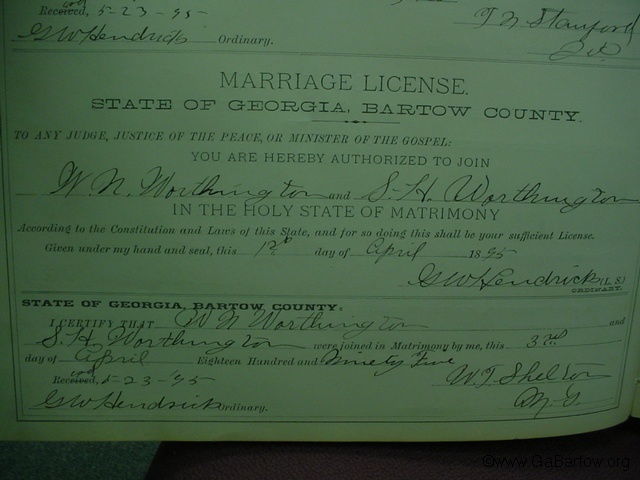 Received, 5-23-95
T N Stanford
G W Hendricks Ordinary.
J. P.
MARRIAGE LICENSE.
STATE OF GEORGIA, BARTOW COUNTY.
TO ANY JUDGE, JUSTICE OF THE PEACE, OR MINISTER OF THE GOSPEL:
YOU ARE HEREBY AUTHORIZED TO JOIN
W. N. Worthington and S. H. Worthington
IN THE HOLY STATE OF MATRIMONY
According to the Constitution and Laws of this State, and for so doing this shall be your sufficient License.
Given under my hand and seal, this day of April 1895
G W Hendricks (L. S.)
ORDINARY.
STATE OF GEORGIA, BARTOW COUNTY:
I CERTIFY THAT W N Worthington and
S. H. Worthington were joined in Matrimony by me, this 3rd
day of April Eighteen Hundred and Ninety Five
Received, 5-23-95
W. T. Shelton
G W Hendricks Ordinary.
M. G.
©www.GaBartow.org